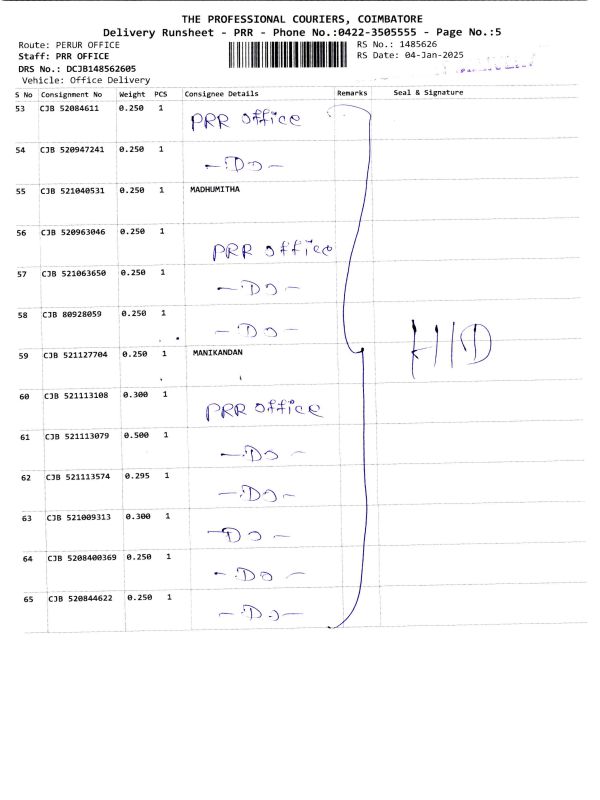 THE PROFESSIONAL COURIERS, COIMBATORE
Delivery Runsheet - PRR - Phone No.:0422-3505555 - Page No.:5
Route: PERUR OFFICE RS No.: 1485626
Staff: PRR OFFICE RS Date: 04-Jan-2025
DRS No.: DCJB148562605
Vehicle: Office Delivery
S No Consignment No Weight PCS Consignee Details Remarks Seal & Signature
53 CJB 52084611 0.250 1 PRR office
54 CJB 520947241 0.250 1 - Do -
55 CJB 521040531 0.250 1 MADHUMITHA
56 CJB 520963046 0.250 1 PRR office
57 CJB 521063650 0.250 1 - Do -
58 CJB 80928059 0.250 1 - Do -
H/D
59 CJB 521127704 0.250 1 MANIKANDAN
60 CJB 521113108 0.300 1 PRR office
61 CJB 521113079 0.500 1 - Do -
62 CJB 521113574 0.295 1 - Do -
63 CJB 521009313 0.300 1 - Do -
64 CJB 5208400369 0.250 1 - Do -
65 CJB 520844622 0.250 1 - Do -